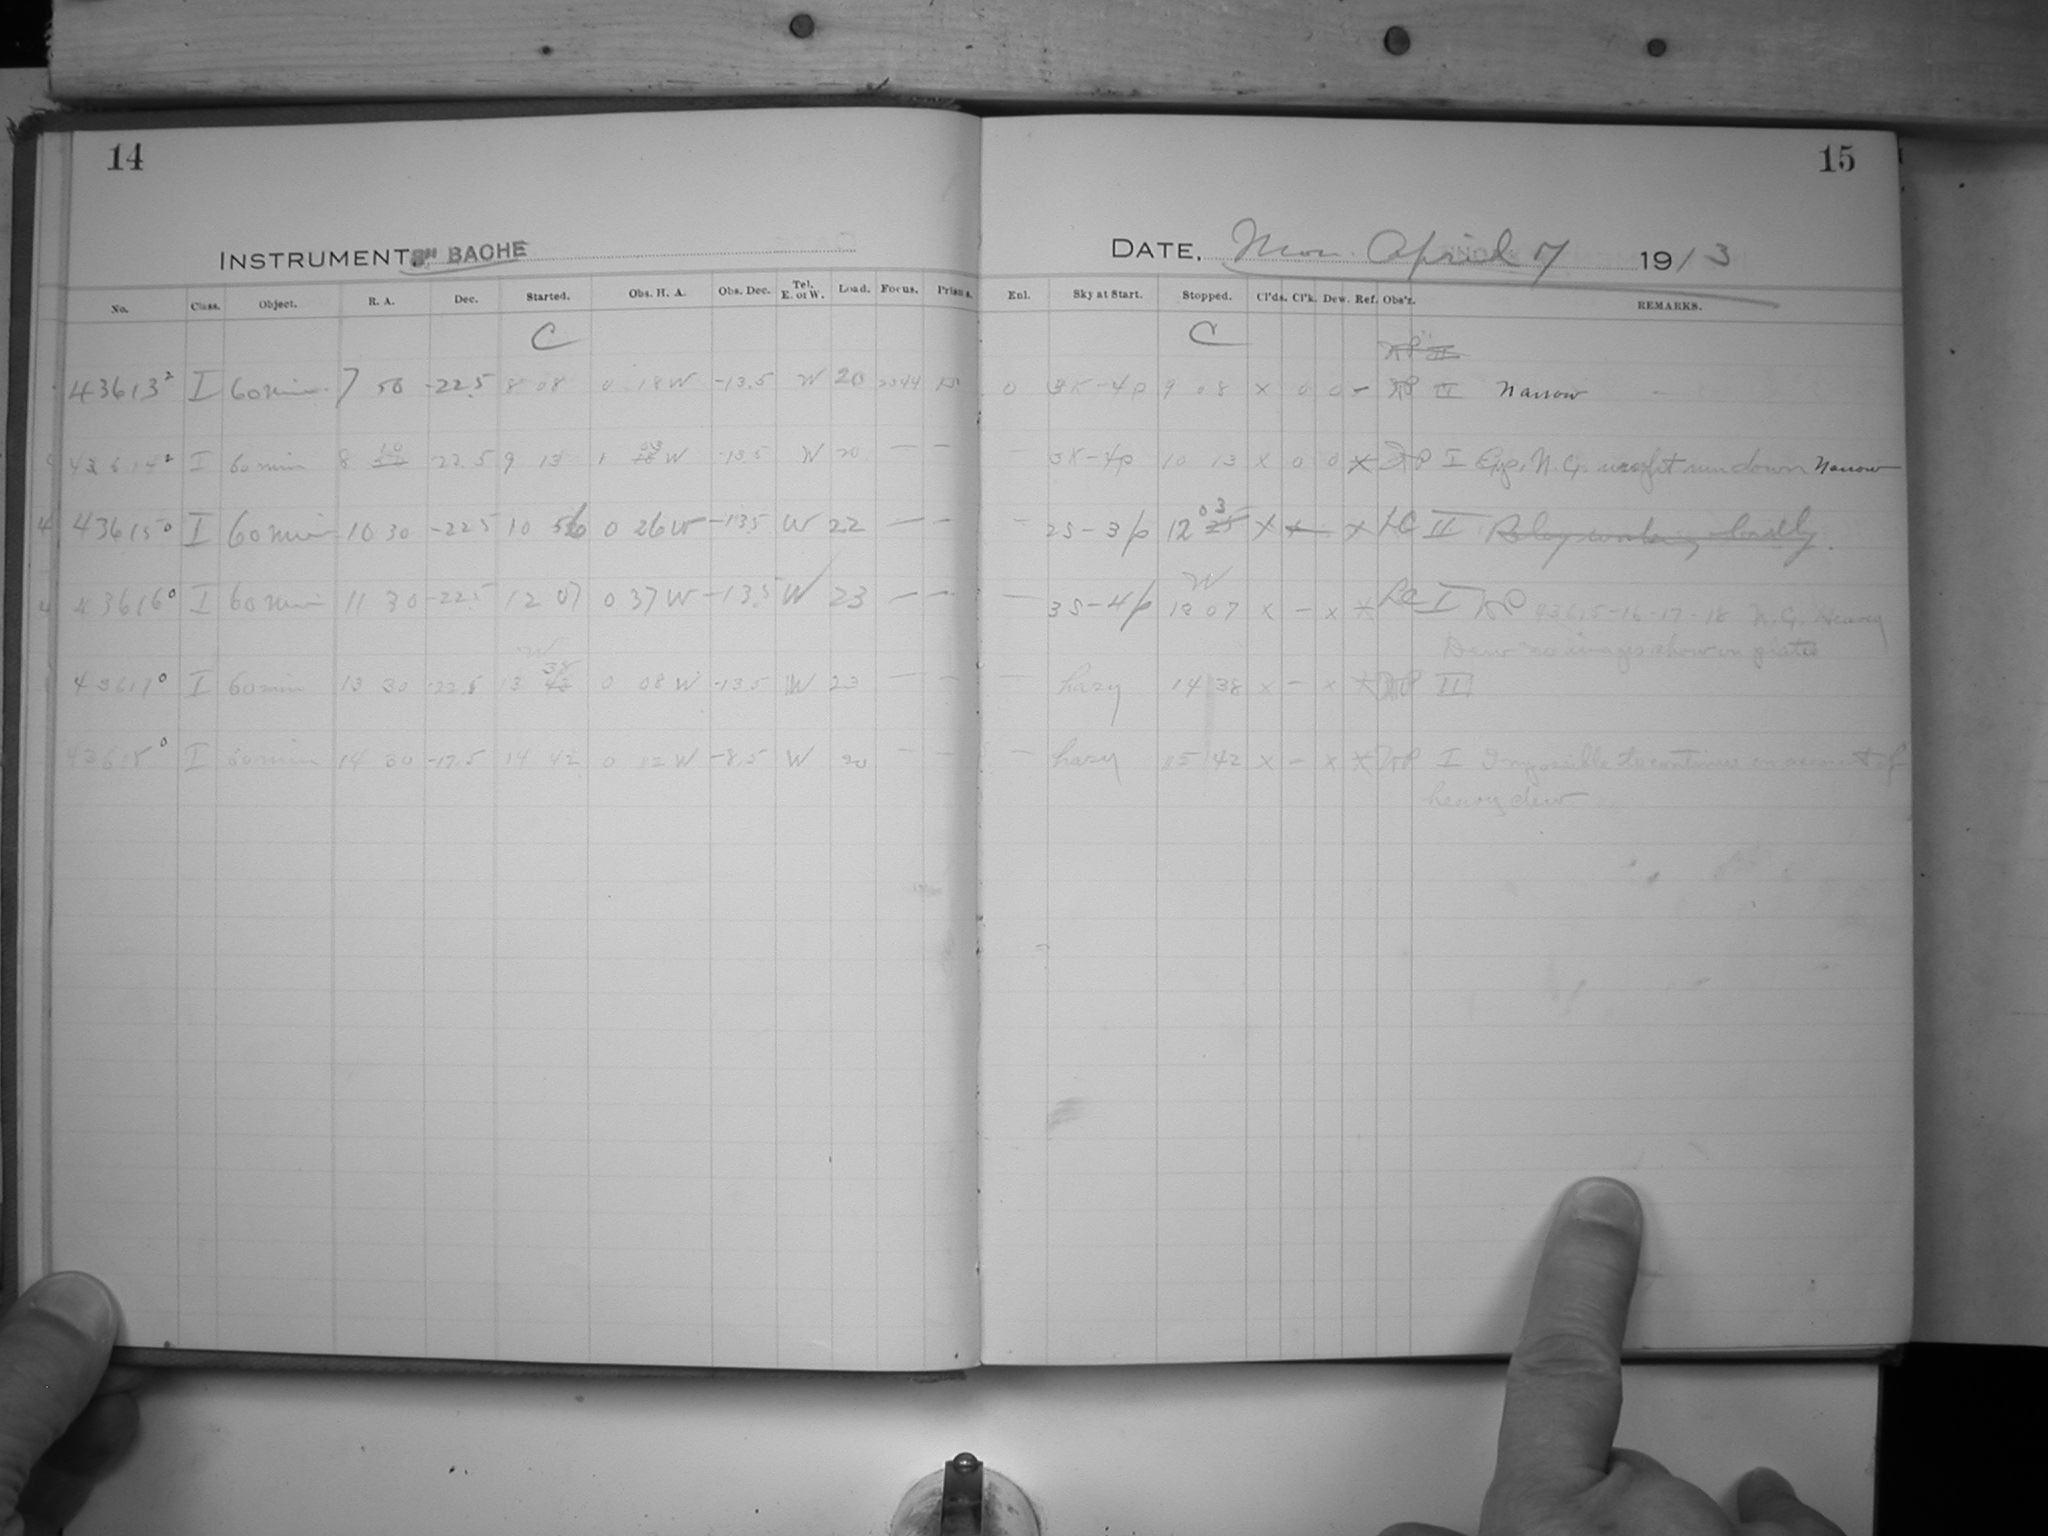 14
15
INSTRUMENT, 8IN BACHE
DATE, Mon. April 7 1913
No. Class. Object. R. A. Dec. Started. Obs. H. A. Obs. Dec. Tel. E. or W. Load. Focus. Prisms. Enl. Sky at Start. Stopped. Cl'ds. Cl'k. Dew. Ref. Obs'r. REMARKS.
C C
43613² I 60 min. 7 50 -22.5 8 08 0 18 W -13.5 W 20 0 3K-4p 9 08 x 0 0 - II Narrow
43614² I 60 min 8 10 -22.5 9 13 1 03 W -13.5 W 20 — — — 3K-4p 10 13 x 0 0 x I N.G. run down Narrow
43615⁰ I 60 min 10 30 -22.5 10 56 0 26 W -13.5 W 22 — — — 2S-3p 12 03 x x LC II Relay working badly.
43616⁰ I 60 min 11 30 -22.5 12 07 0 37 W -13.5 W 23 — — — 3S-4p 13 07 x - x x LC I 43615-16-17-18 N.G. Heavy
Dew no images show on plates
43617⁰ I 60 min 13 30 -22.5 13 38 0 08 W -13.5 W 23 — — — hazy 14 38 x - x x III
43618⁰ I 60 min 14 30 -17.5 14 42 0 12 W -8.5 W 20 — — — hazy 15 42 x - x x I Impossible to continue on account of
heavy dew